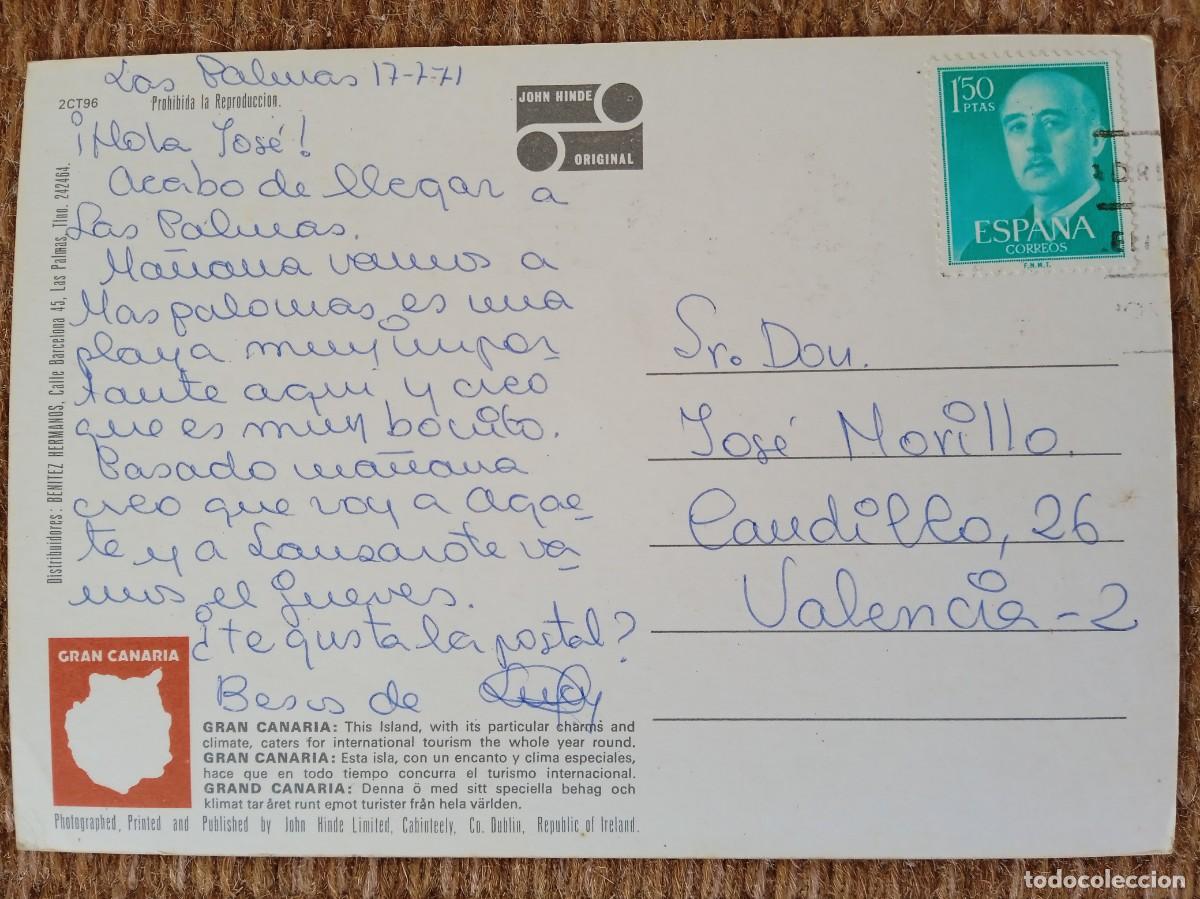 Las Palmas 17-7-71
2CT96
Prohibida la Reproduccion.
JOHN HINDE
ORIGINAL
¡Hola José!
Acabo de llegar a
Las Palmas.
Mañana vamos a
Maspalomas es una
playa muy impor-
tante aquí y creo
que es muy bonito.
Pasado mañana
creo que voy a Agae-
te y a Lanzarote va-
mos el Jueves.
¿te gusta la postal?
Besos de
Distribuidores: BENITEZ HERMANOS, Calle Barcelona 45, Las Palmas, Tlno. 242464.
GRAN CANARIA
GRAN CANARIA: This Island, with its particular charms and
climate, caters for international tourism the whole year round.
GRAN CANARIA: Esta isla, con un encanto y clima especiales,
hace que en todo tiempo concurra el turismo internacional.
GRAND CANARIA: Denna ö med sitt speciella behag och
klimat tar året runt emot turister från hela världen.
Photographed, Printed and Published by John Hinde Limited, Cabinteely, Co. Dublin, Republic of Ireland.
1'50
PTAS
ESPAÑA
CORREOS
F.N.M.T.
Sr. Don.
José Morillo.
Caudillo, 26
Valencia-2
todocoleccion